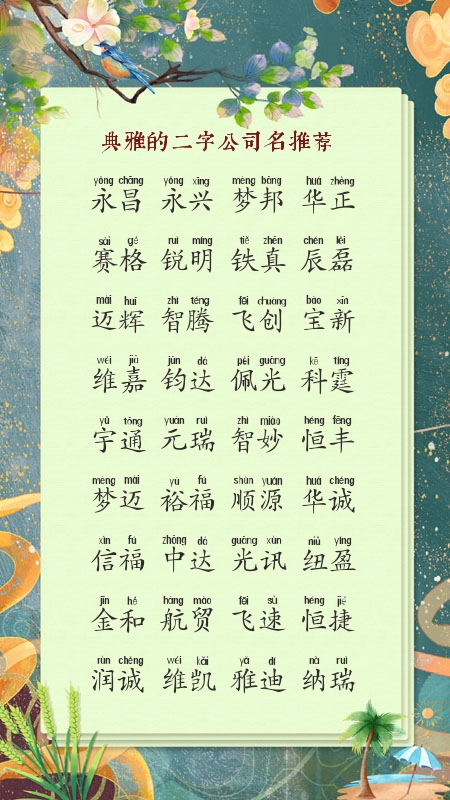 典雅的二字公司名推荐
yǒng chāng yǒng xīng mèng bāng huá zhèng
永昌 永兴 梦邦 华正
sài gé ruì míng tiě zhēn chén lěi
赛格 锐明 铁真 辰磊
mài huī zhì téng fēi chuàng bǎo xīn
迈辉 智腾 飞创 宝新
wéi jiā jūn dá pèi guāng kē tíng
维嘉 钧达 佩光 科霆
yǔ tōng yuán ruì zhì miào héng fēng
宇通 元瑞 智妙 恒丰
mèng mài yù fú shùn yuán huá chéng
梦迈 裕福 顺源 华诚
xìn fú zhōng dá guāng xùn niǔ yíng
信福 中达 光讯 纽盈
jīn hé háng mào fēi sù héng jié
金和 航贸 飞速 恒捷
rùn chéng wéi kǎi yǎ dí nà ruì
润诚 维凯 雅迪 纳瑞